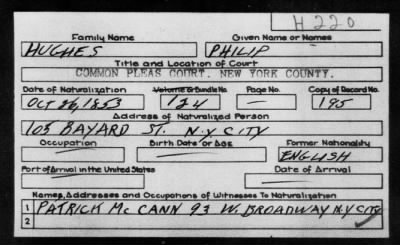 H 220
Family Name Given Name or Names
HUGHES PHILIP
Title and Location of Court
COMMON PLEAS COURT. NEW YORK COUNTY.
Date of Naturalization Volume or Bundle No. Page No. Copy of Record No.
OCT 26, 1853 124 — 195
Address of Naturalized Person
105 BAYARD ST. N.Y. CITY
Occupation Birth Date or Age Former Nationality
ENGLISH
Port of Arrival in the United States Date of Arrival
Names, Addresses and Occupations of Witnesses To Naturalization
1 PATRICK McCANN 93 W. BROADWAY N.Y. CITY
2